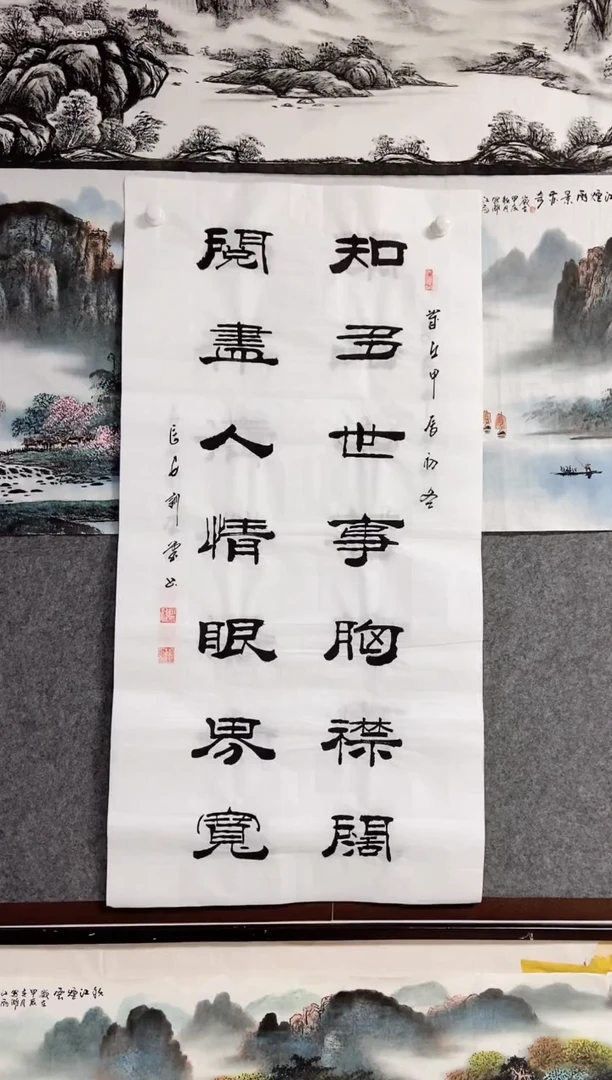 歲在甲辰初冬
知多世事胸襟闊
閱盡人情眼界寬